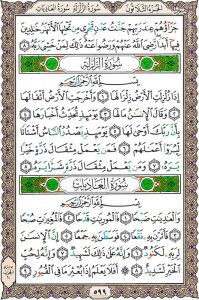 سُورَةُ الزَّلْزَلَةِ ‏سُورَةُ العَادِيَاتِ
الجُزْءُ الثَّلَاثُونَ
جَزَاؤُهُمْ عِندَ رَبِّهِمْ جَنَّاتُ عَدْنٍ تَجْرِي مِن تَحْتِهَا الْأَنْهَارُ خَالِدِينَ
فِيهَا أَبَدًا رَّضِيَ اللَّهُ عَنْهُمْ وَرَضُوا عَنْهُ ذَلِكَ لِمَنْ خَشِيَ رَبَّهُ ٨
سُورَةُ الزَّلْزَلَةِ
بِسْمِ اللَّهِ الرَّحْمَنِ الرَّحِيمِ
إِذَا زُلْزِلَتِ الْأَرْضُ زِلْزَالَهَا ١ وَأَخْرَجَتِ الْأَرْضُ أَثْقَالَهَا
٢ وَقَالَ الْإِنسَانُ مَا لَهَا ٣ يَوْمَئِذٍ تُحَدِّثُ أَخْبَارَهَا ٤
بِأَنَّ رَبَّكَ أَوْحَى لَهَا ٥ يَوْمَئِذٍ يَصْدُرُ النَّاسُ أَشْتَاتًا
لِّيُرَوْا أَعْمَالَهُمْ ٦ فَمَن يَعْمَلْ مِثْقَالَ ذَرَّةٍ خَيْرًا
يَرَهُ ٧ وَمَن يَعْمَلْ مِثْقَالَ ذَرَّةٍ شَرًّا يَرَهُ ٨
سُورَةُ العَادِيَاتِ
بِسْمِ اللَّهِ الرَّحْمَنِ الرَّحِيمِ
وَالْعَادِيَاتِ ضَبْحًا ١ فَالْمُورِيَاتِ قَدْحًا ٢ فَالْمُغِيرَاتِ صُبْحًا
٣ فَأَثَرْنَ بِهِ نَقْعًا ٤ فَوَسَطْنَ بِهِ جَمْعًا ٥ إِنَّ الْإِنسَانَ
لِرَبِّهِ لَكَنُودٌ ٦ وَإِنَّهُ عَلَى ذَلِكَ لَشَهِيدٌ ٧ وَإِنَّهُ لِحُبِّ
الْخَيْرِ لَشَدِيدٌ ٨ أَفَلَا يَعْلَمُ إِذَا بُعْثِرَ مَا فِي الْقُبُورِ ٩
٥٩٩